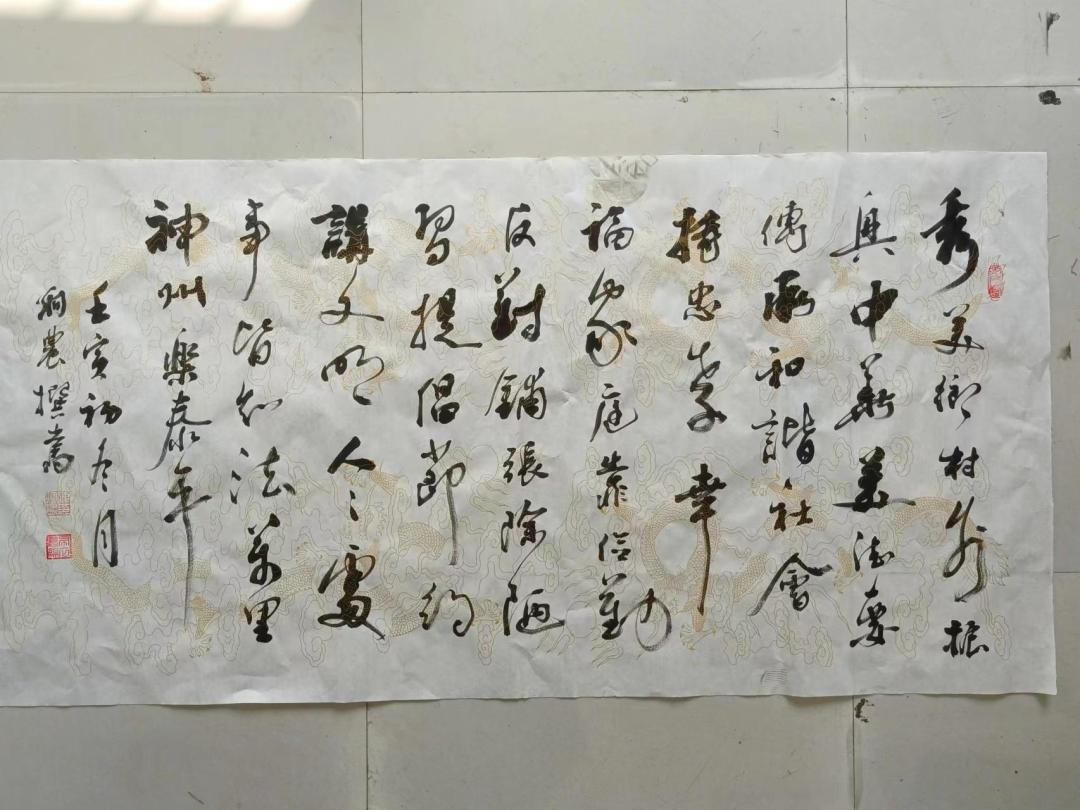 秀美鄉村振
興中華美德要
傳承和諧社會
忠孝幸
福家庭靠信勤
反對鋪張除陋
習提倡節約
講文明人々處
事皆知法萬里
神州樂泰年
壬寅初冬月
農撰書